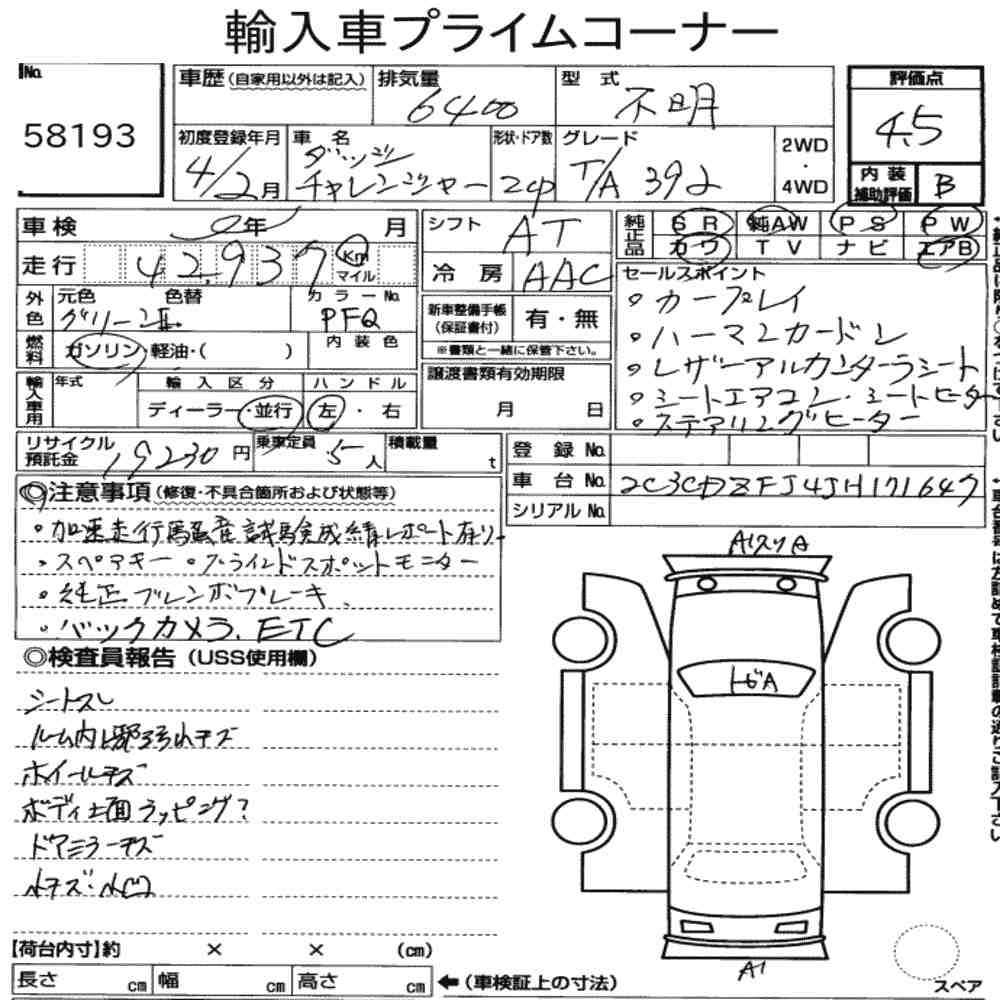 輸入車プライムコーナー
No.
58193
車歴(自家用以外は記入) 排気量 6400 型式 不明
評価点 4.5
内装補助評価 B
初度登録年月 4/2月 車名 ダッジ チャレンジャー 形状・ドア数 2cp グレード T/A 392 2WD・4WD
車検 年 月
走行 42,937 Km マイル
シフト AT
冷房 AAC
純正品 SR 純AW PS PW
カワ TV ナビ エアB
外色 元色 色替 カラーNo.
グリーンⅡ PFQ
燃料 ガソリン・軽油・( ) 内装色
新車整備手帳(保証書付) 有・無
※書類と一緒に保管下さい。
セールスポイント
・カープレイ
・ハーマンカードン
・レザーアルカンターラシート
・シートエアコン・シートヒーター
・ステアリングヒーター
輸入車用 年式 輸入区分 ハンドル
ディーラー・並行 左・右
譲渡書類有効期限
月 日
リサイクル預託金 19230円 乗車定員 5人 積載量 t
登録No.
車台No. 2C3CDZFJ4JH171647
シリアルNo.
◎注意事項(修復・不具合箇所および状態等)
・加速走行騒音試験成績レポート有り
・スペアキー ・ブラインドスポットモニター
・純正ブレンボブレーキ
・バックカメラ、ETC
◎検査員報告(USS使用欄)
シートスレ
ルーム内
ホイールキズ
ボディ上面ラッピング?
ドアミラーキズ
小キズ・小凹
A1スリA
トビA
A1
スペア
【荷台内寸】約 × × (cm)
長さ cm 幅 cm 高さ cm ←(車検証上の寸法)